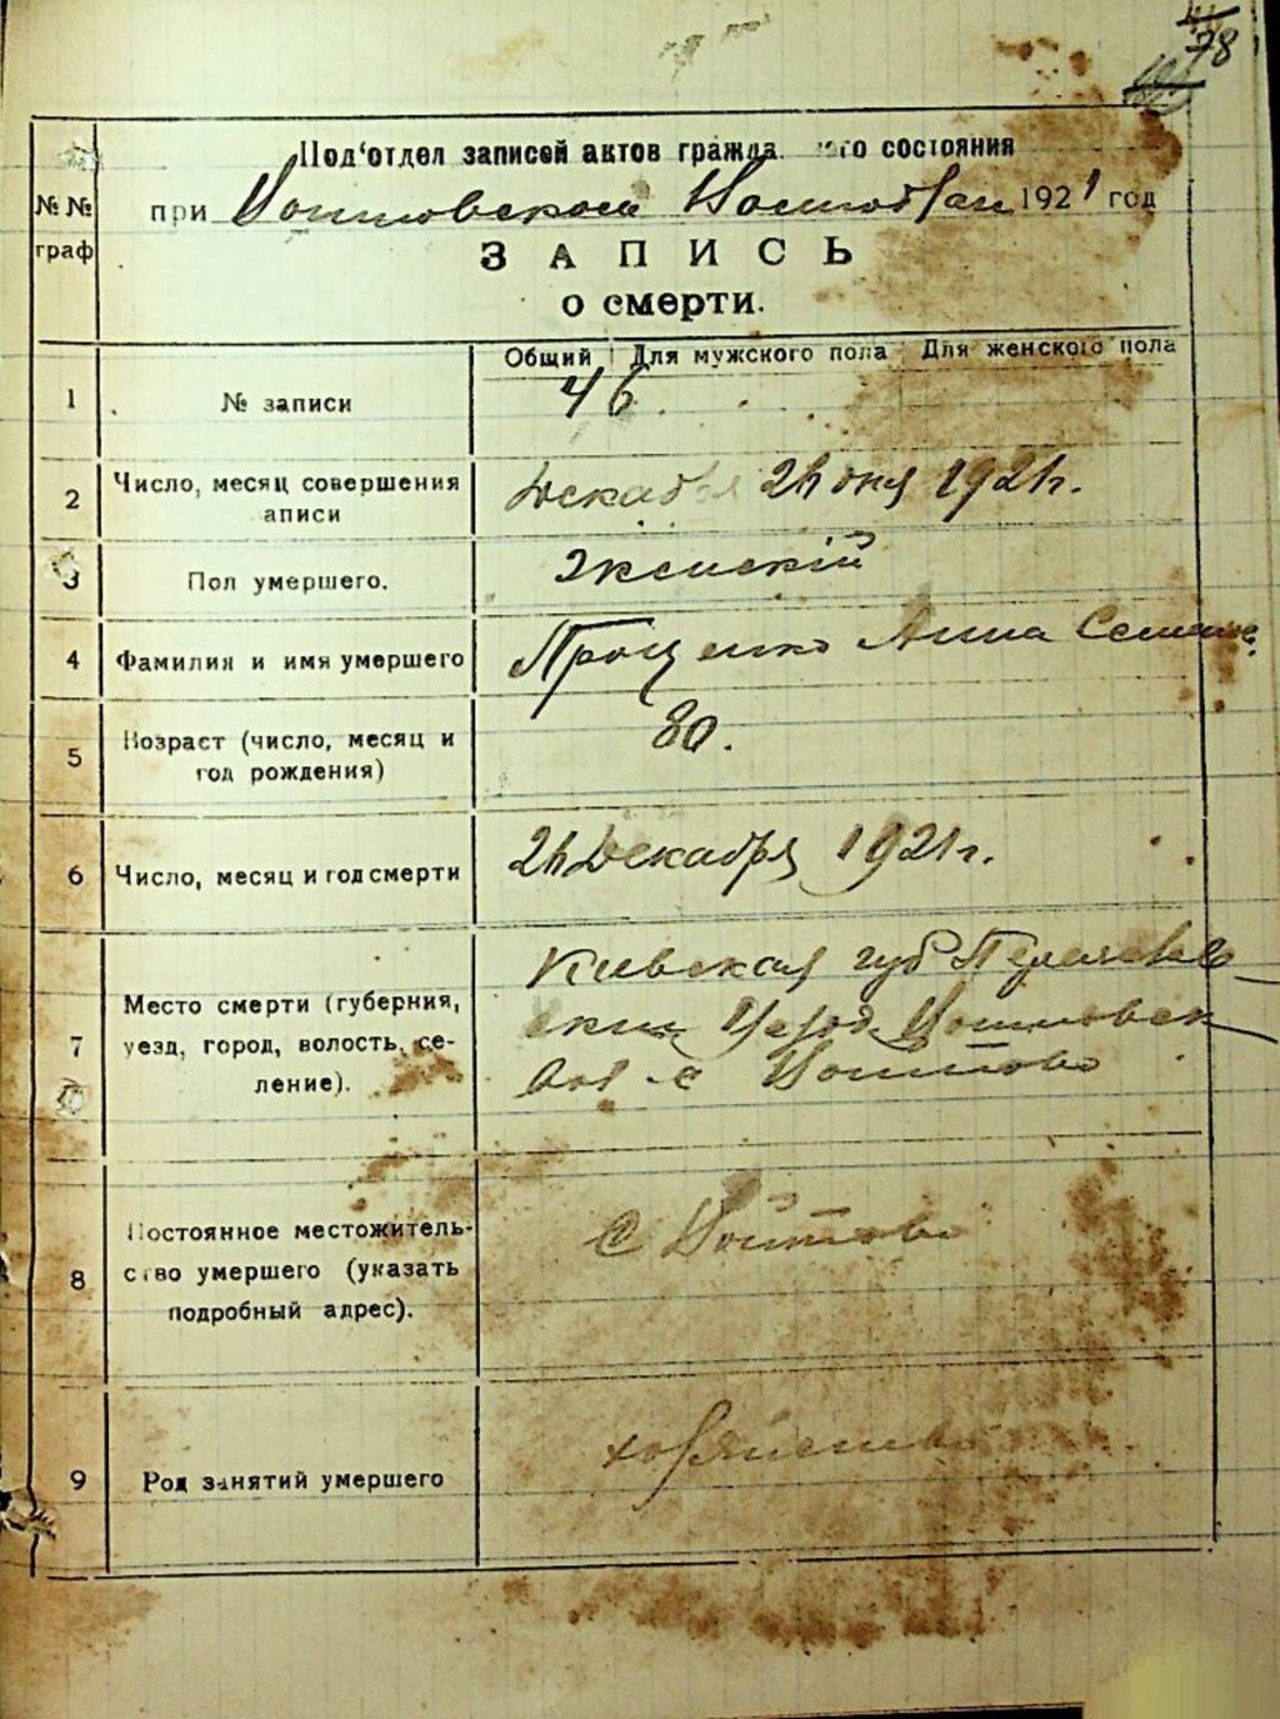 78
Под‘отдел записей актов гражда го состояния
№ №
граф
при Войтовском 1921 год
ЗАПИСЬ
о смерти.
Общий Для мужского пола Для женского пола
1 № записи 46.
2 Число, месяц совершения
аписи
Декабря 24 дня 1921 г.
3 Пол умершего. Женский
4 Фамилия и имя умершего Проценко Анна
5 Возраст (число, месяц и
год рождения)
80.
6 Число, месяц и год смерти 24 Декабря 1921 г.
7 Место смерти (губерния,
уезд, город, волость, се-
ление).
Киевская губ
ский Уезд Войтовск
вол с Войтово
8 Постоянное местожитель-
ство умершего (указать
подробный адрес).
С Войтово
9 Род занятий умершего хозяйство